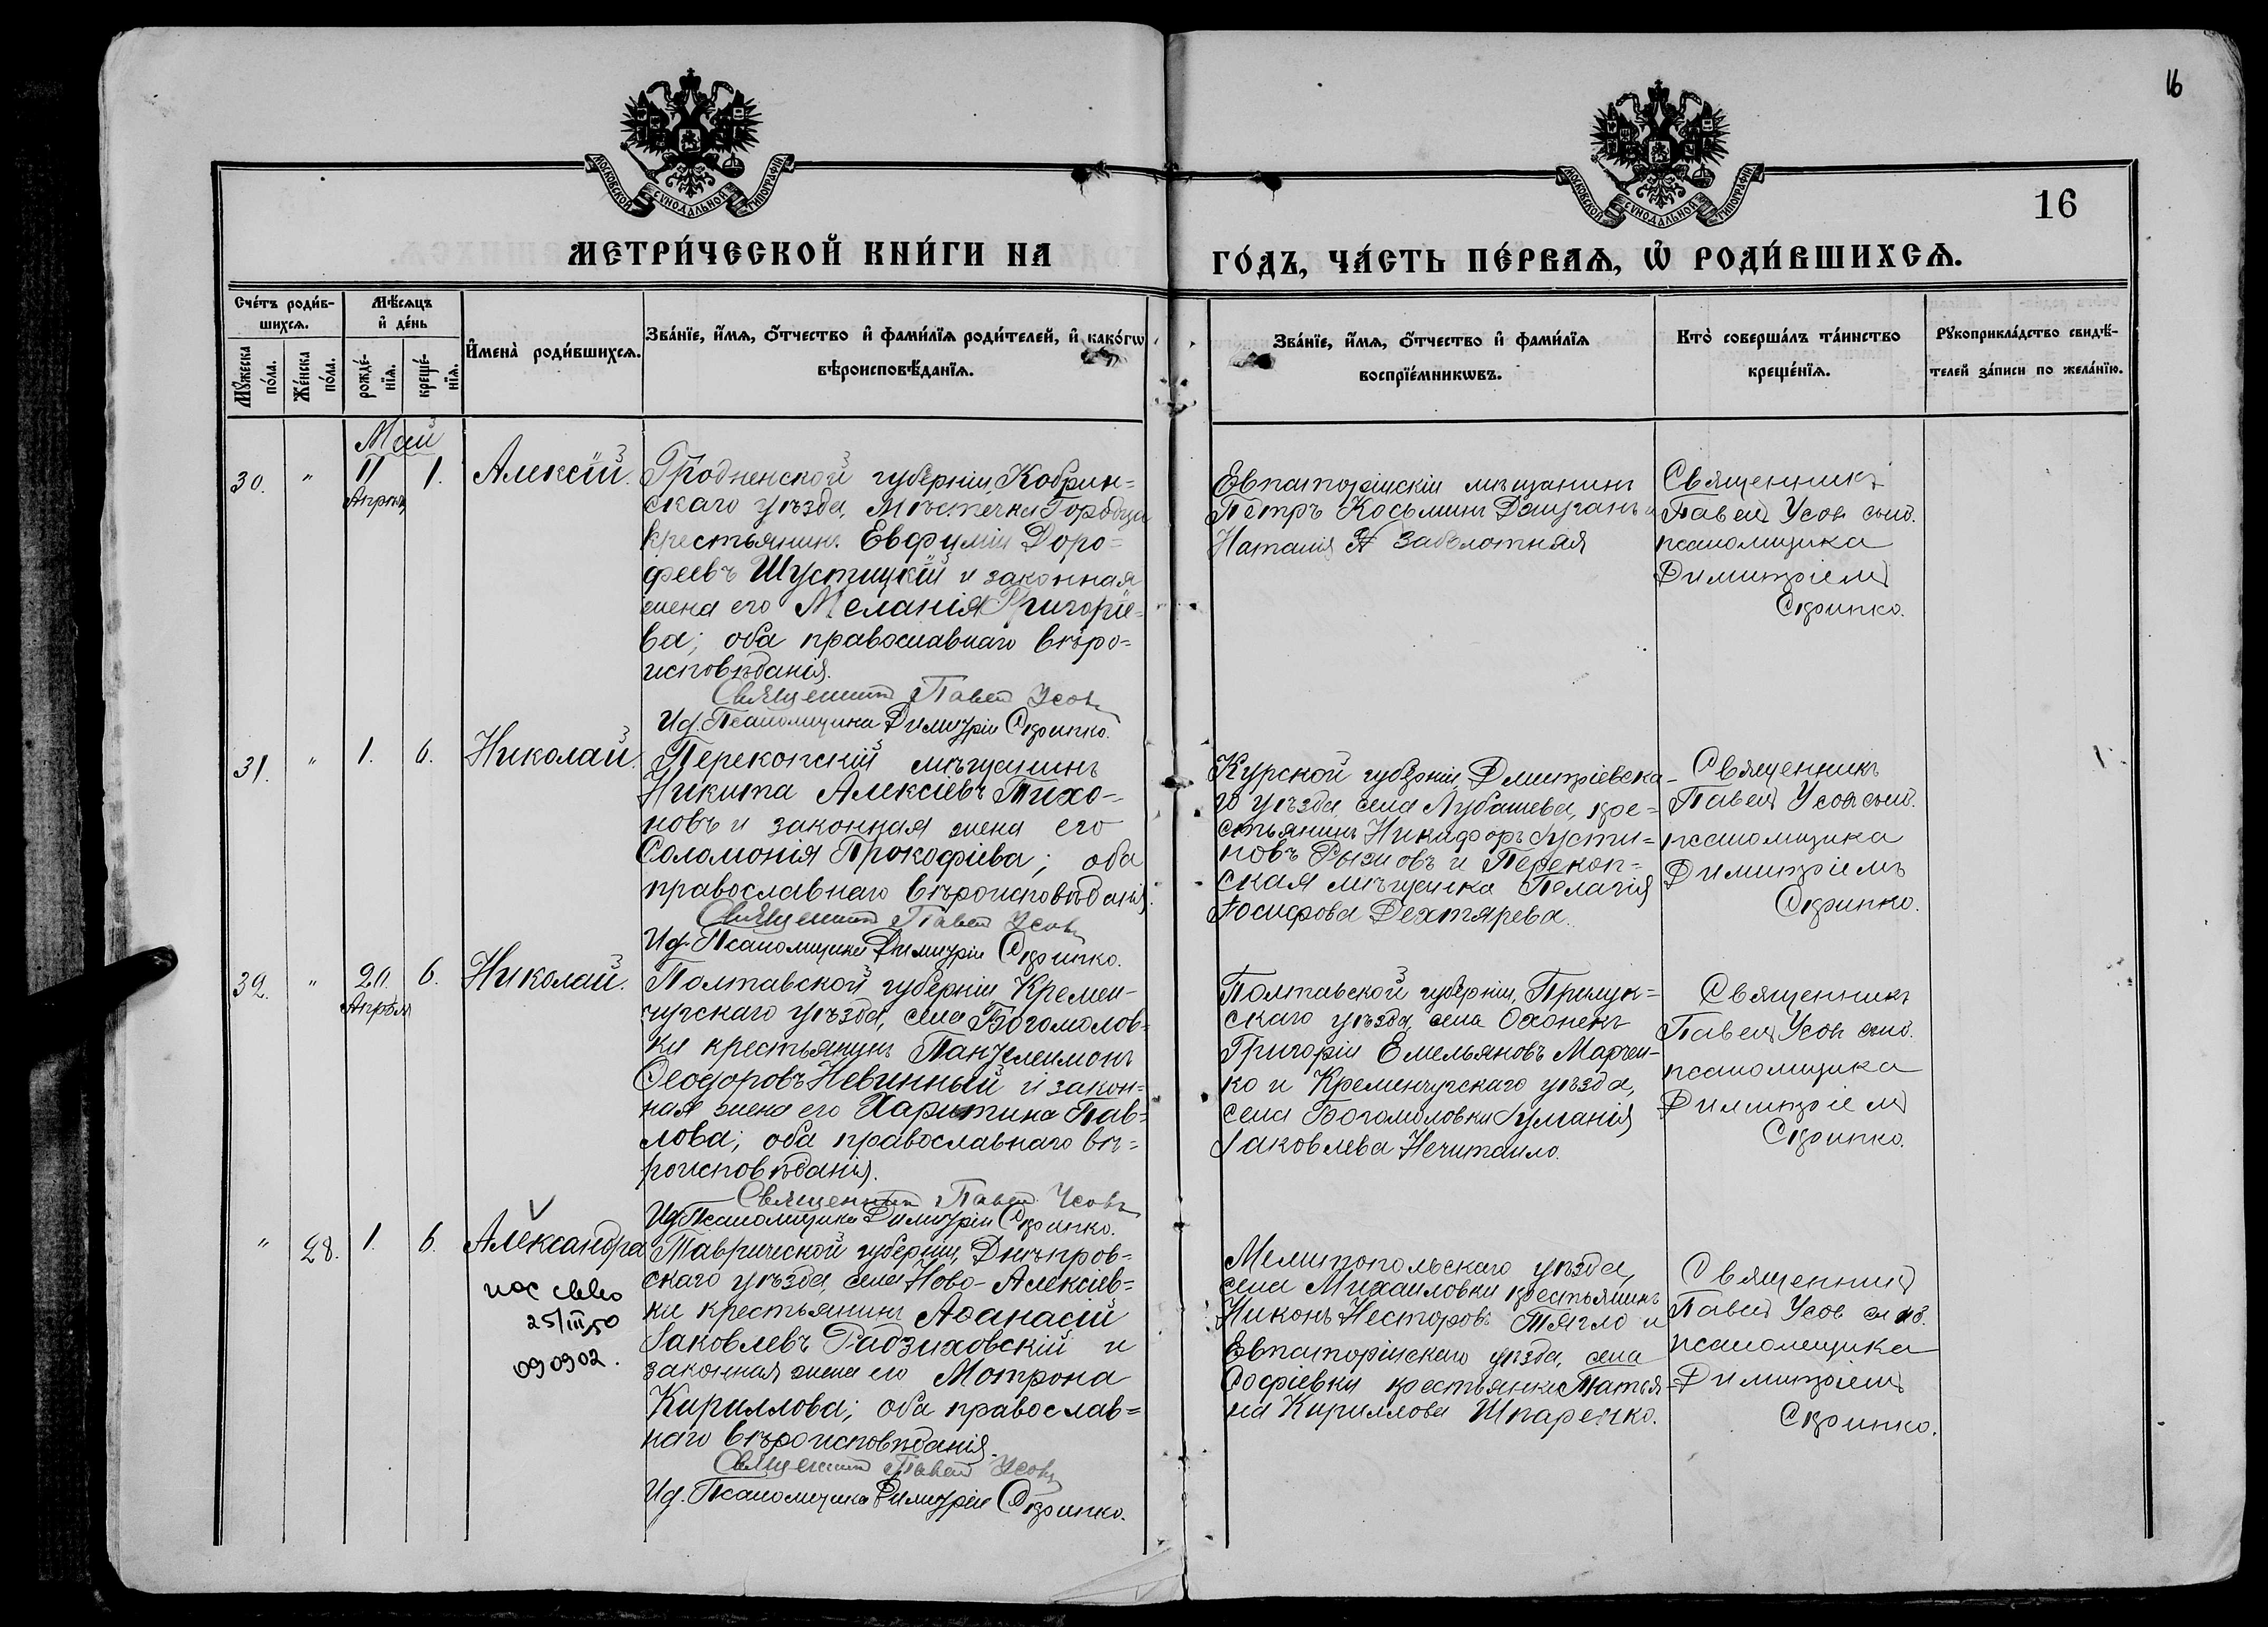 16
МОСКОВСКОЙ СѴНОДАЛЬНОЙ ТИПОГРАФІИ
МОСКОВСКОЙ СѴНОДАЛЬНОЙ ТИПОГРАФІИ
16
МЕТРИ́ЧЕСКОЙ КНИ́ГИ НА
ГО́ДЪ, ЧА́СТЬ ПЕ́РВАѦ, Ѡ҆ РОДИ́ВШИХСѦ.
Сче́тъ роди́в-
шихсѧ.
Мѣ́сѧцъ
и҆ де́нь
Мꙋ́жеска
по́ла.
Же́нска
по́ла.
рожде́-
нїѧ.
креще́-
нїѧ.
И҆мена̀ роди́вшихсѧ.
Зва́нїе, и҆́мѧ, ѻ҆́тчество и҆ фами́лїѧ роди́телей, и҆ како́гѡ
вѣроисповѣ́данїѧ.
Зва́нїе, и҆́мѧ, ѻ҆́тчество и҆ фами́лїѧ
воспрїе́мникѡвъ.
Кто̀ соверша́лъ та́инство
креще́нїѧ.
Рꙋкоприкла́дство свидѣ́-
телей за́писи по жела́нїю.
Май
30.
"
11
Апрѣля
1.
Алексій.
Гродненской губерніи, Кобрин-
скаго уѣзда, мѣстечка Городца
крестьянинъ Евфумій Доро-
феевъ Шустицкій и законная
жена его Меланія Григоріе-
ва; оба православнаго вѣро-
исповѣданія.
Священникъ Павелъ Усовъ
Ид. Псаломщика Димитрій Скрипко.
Евпаторійскій мѣщанинъ
Петръ Косьминъ и
Наталія Заболотная
Священникъ
Павелъ Усовъ
псаломщика
Димитріемъ
Скрипко.
31.
"
1.
6.
Николай.
Перекопскій мѣщанинъ
Никита Алексіевъ Тихо-
новъ и законная жена его
Соломонія Прокофіева; оба
православнаго вѣроисповѣданія.
Священникъ Павелъ Усовъ
Ид. Псаломщика Димитрій Скрипко.
Курской губерніи, Дмитріевска-
го уѣзда, села Лубашева, кре-
стьянинъ Никифоръ Іусти-
новъ Рыжовъ и Перекоп-
ская мѣщанка Пелагія
Іосифова Дехтярева.
Священникъ
Павелъ Усовъ
псаломщика
Димитріемъ
Скрипко.
32.
"
20.
Апрѣля
6.
Николай.
Полтавской губерніи, Кремен-
чугскаго уѣзда, села Богомолов-
ки крестьянинъ Пантелеимонъ
Ѳеодоровъ Невинный и закон-
ная жена его Харитина Пав-
лова; оба православнаго вѣ-
роисповѣданія.
Священникъ Павелъ Усовъ
Ид. Псаломщика Димитрій Скрипко.
Полтавской губерніи, Прилук-
скаго уѣзда, села Охонекъ
Григорій Емельяновъ Марчен-
ко и Кременчугскаго уѣзда,
села Богомоловки Іуліанія
Іаковлева Нечитайло.
Священникъ
Павелъ Усовъ
псаломщика
Димитріемъ
Скрипко.
"
28.
1.
6.
Александра
25/III 50
090902.
Таврической губерніи, Днѣпров-
скаго уѣзда, села Ново-Алексіев-
ки крестьянинъ Аѳанасій
Іаковлевъ Радзиховскій и
законная жена его Мотрона
Кириллова; оба православ-
наго вѣроисповѣданія.
Священникъ Павелъ Усовъ
Ид. Псаломщика Димитрій Скрипко.
Мелитопольскаго уѣзда,
села Михайловки крестьянинъ
Никонъ Несторовъ Тягло и
Евпаторійскаго уѣзда, села
Софіевки крестьянка Татья-
на Кириллова Шпаренко.
Священникъ
Павелъ Усовъ
псаломщика
Димитріемъ
Скрипко.